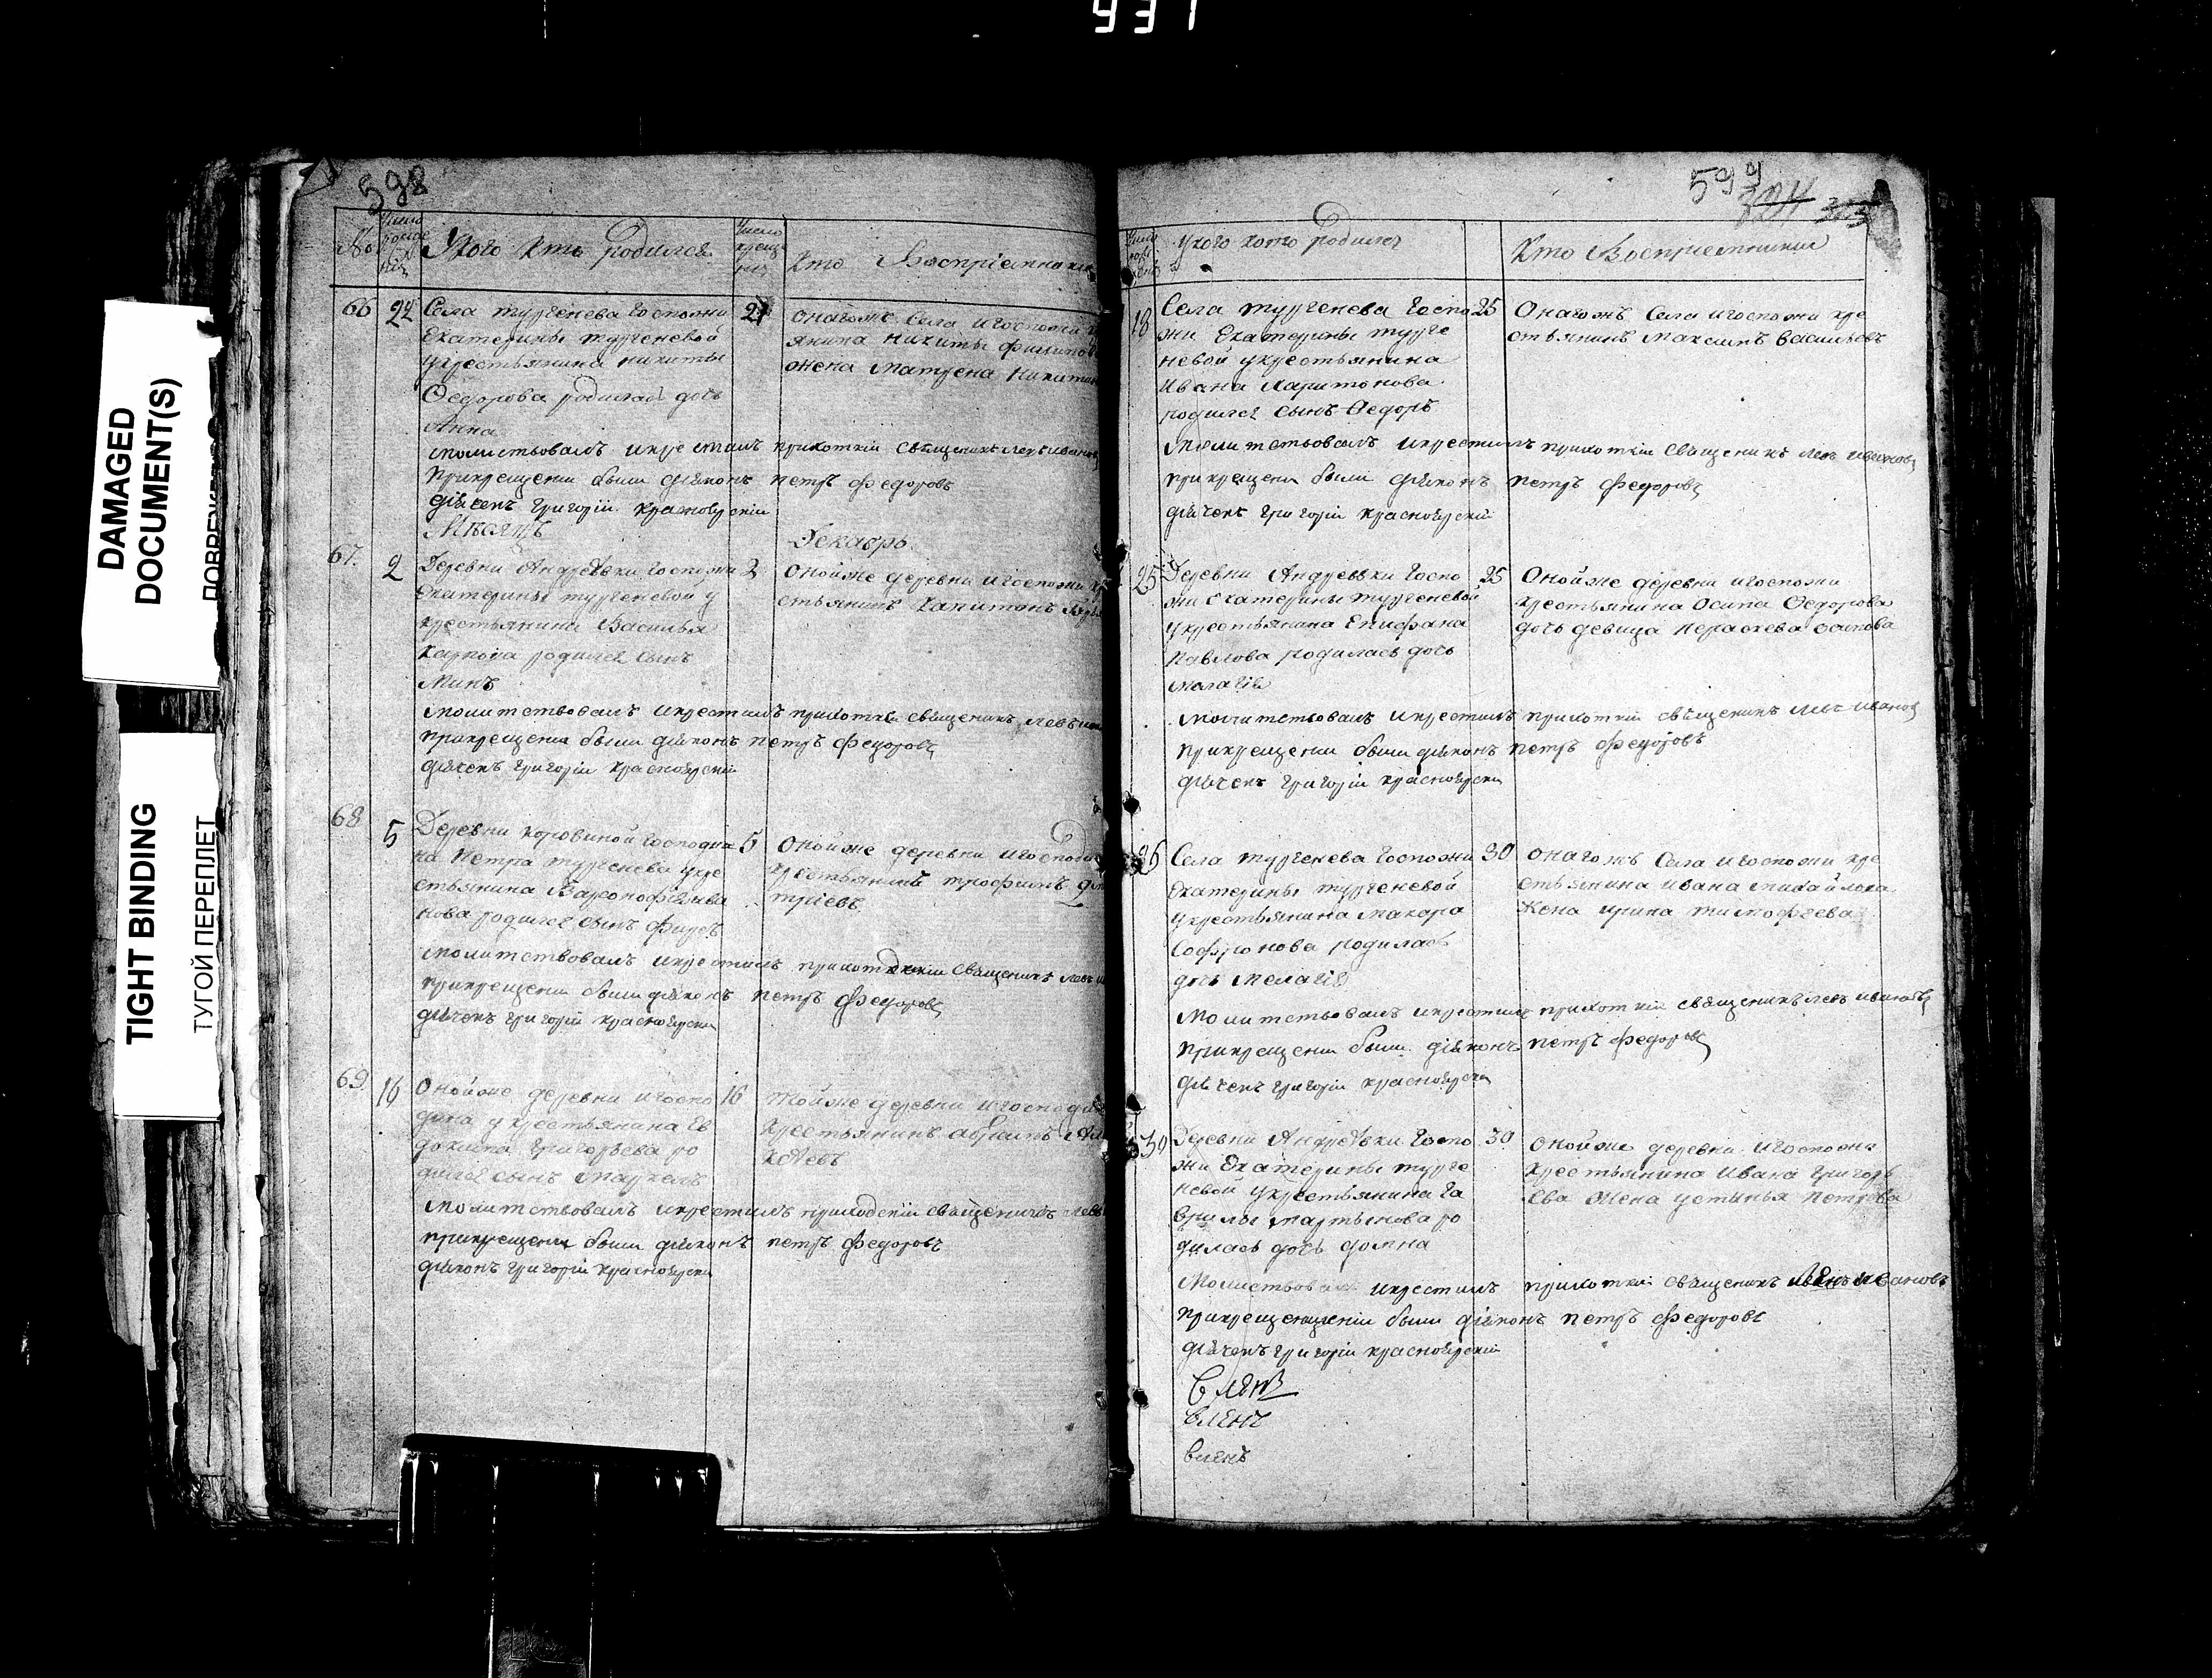 931
DAMAGED
DOCUMENT(S)
TIGHT BINDING
ТУГОЙ ПЕРЕПЛЕТ
598
№
Число рожде нія
У кого кто родился
Число креще нія
Кто Воспріемники
66
Села тургенева госпожи
Екатерины тургеневой
укрестьянина никиты
Ѳедорова родилась дочь
Анна
онагожъ села игоспожи
янина никиты филипов
жена матрена никитин
молитвовалъ икрестилъ прихоткіи священикъ левъ иванов
прикрещени были діяконъ петръ федоровъ
дьячекъ григоріи красноярскіи
Мѣсяцъ Декабрь
67.
2
Деревни Андреевки госпожи
Екатерины тургеневой у
крестьянина Василья
карпова родился сынъ
Минъ
2
Онойже деревни игоспожи кр
стьянинъ капитонъ
молитствовалъ икрестилъ прихоткіи священикъ левъ
прикрещени были діяконъ петръ федоровъ
дьячекъ григоріи красноярскіи
68
5
Деревни коровиной господи
на Петра тургенева укре
стьянина Варсонофія ива
нова родился сынъ фирсъ
5
Онойже деревни игосподи
крестьянинъ трофимъ дми
тріевъ
молитствовалъ икрестилъ священикъ левъ
прикрещени были діяконъ петръ федоровъ
дьячекъ григоріи красноярскіи
69
16
Онойже деревни игоспо
дина укрестьянина Ев
докима григорьева ро
дился сынъ маркелъ
16
тойже деревни игосподи
крестьянинъ
молитствовалъ икрестилъ приходскіи священикъ левъ
прикрещени были діяконъ петръ федоровъ
дьяконъ григоріи красноярскіи
599
у кого кто родился
Кто Воспріемники
18
Села тургенева госпо
жи Екатерины турге
невой укрестьянина
Ивана Харитонова
родился сынъ Ѳедоръ
25
Онагожъ села игоспожи кре
стьянинъ максимъ васильевъ
молитствовалъ икрестилъ прихоткіи священикъ левъ ивановъ
прикрещени были діяконъ петръ федоровъ
дьячекъ григоріи красноярскіи
25
Деревни Андреевки госпо
жи Екатерины тургеневой
укрестьянина Епифана
Павлова родилась дочь
малагія
25
Онойже деревни игоспожи
крестьянина Осипа Ѳедорова
дочь девица Параскева осипова
молитствовалъ икрестилъ прихоткіи священикъ левъ ивановъ
прикрещени были діяконъ петръ федоровъ
дьячекъ григоріи красноярскіи
26
Села тургенева госпожи
Екатерины тургеневой
укрестьянина макара
Софронова родилась
дочь мелагія
30
онагожъ села игоспожи кре
стьянина ивана михайлова
жена ирина тимофеева
молитствовалъ икрестилъ прихоткіи священикъ левъ ивановъ
прикрещени были діяконъ петръ федоровъ
дьячекъ григоріи красноярскіи
30
Деревни Андреевки госпо
жи Екатерины турге
невой укрестьянина га
врилы мартынова ро
дилась дочь домна
30
онойже деревни игоспожи
крестьянина Ивана григорь
ева жена устинья петрова
Молитствовалъ икрестилъ прихоткіи священикъ ивановъ
были діяконъ петръ федоровъ
дьячекъ григоріи красноярскіи